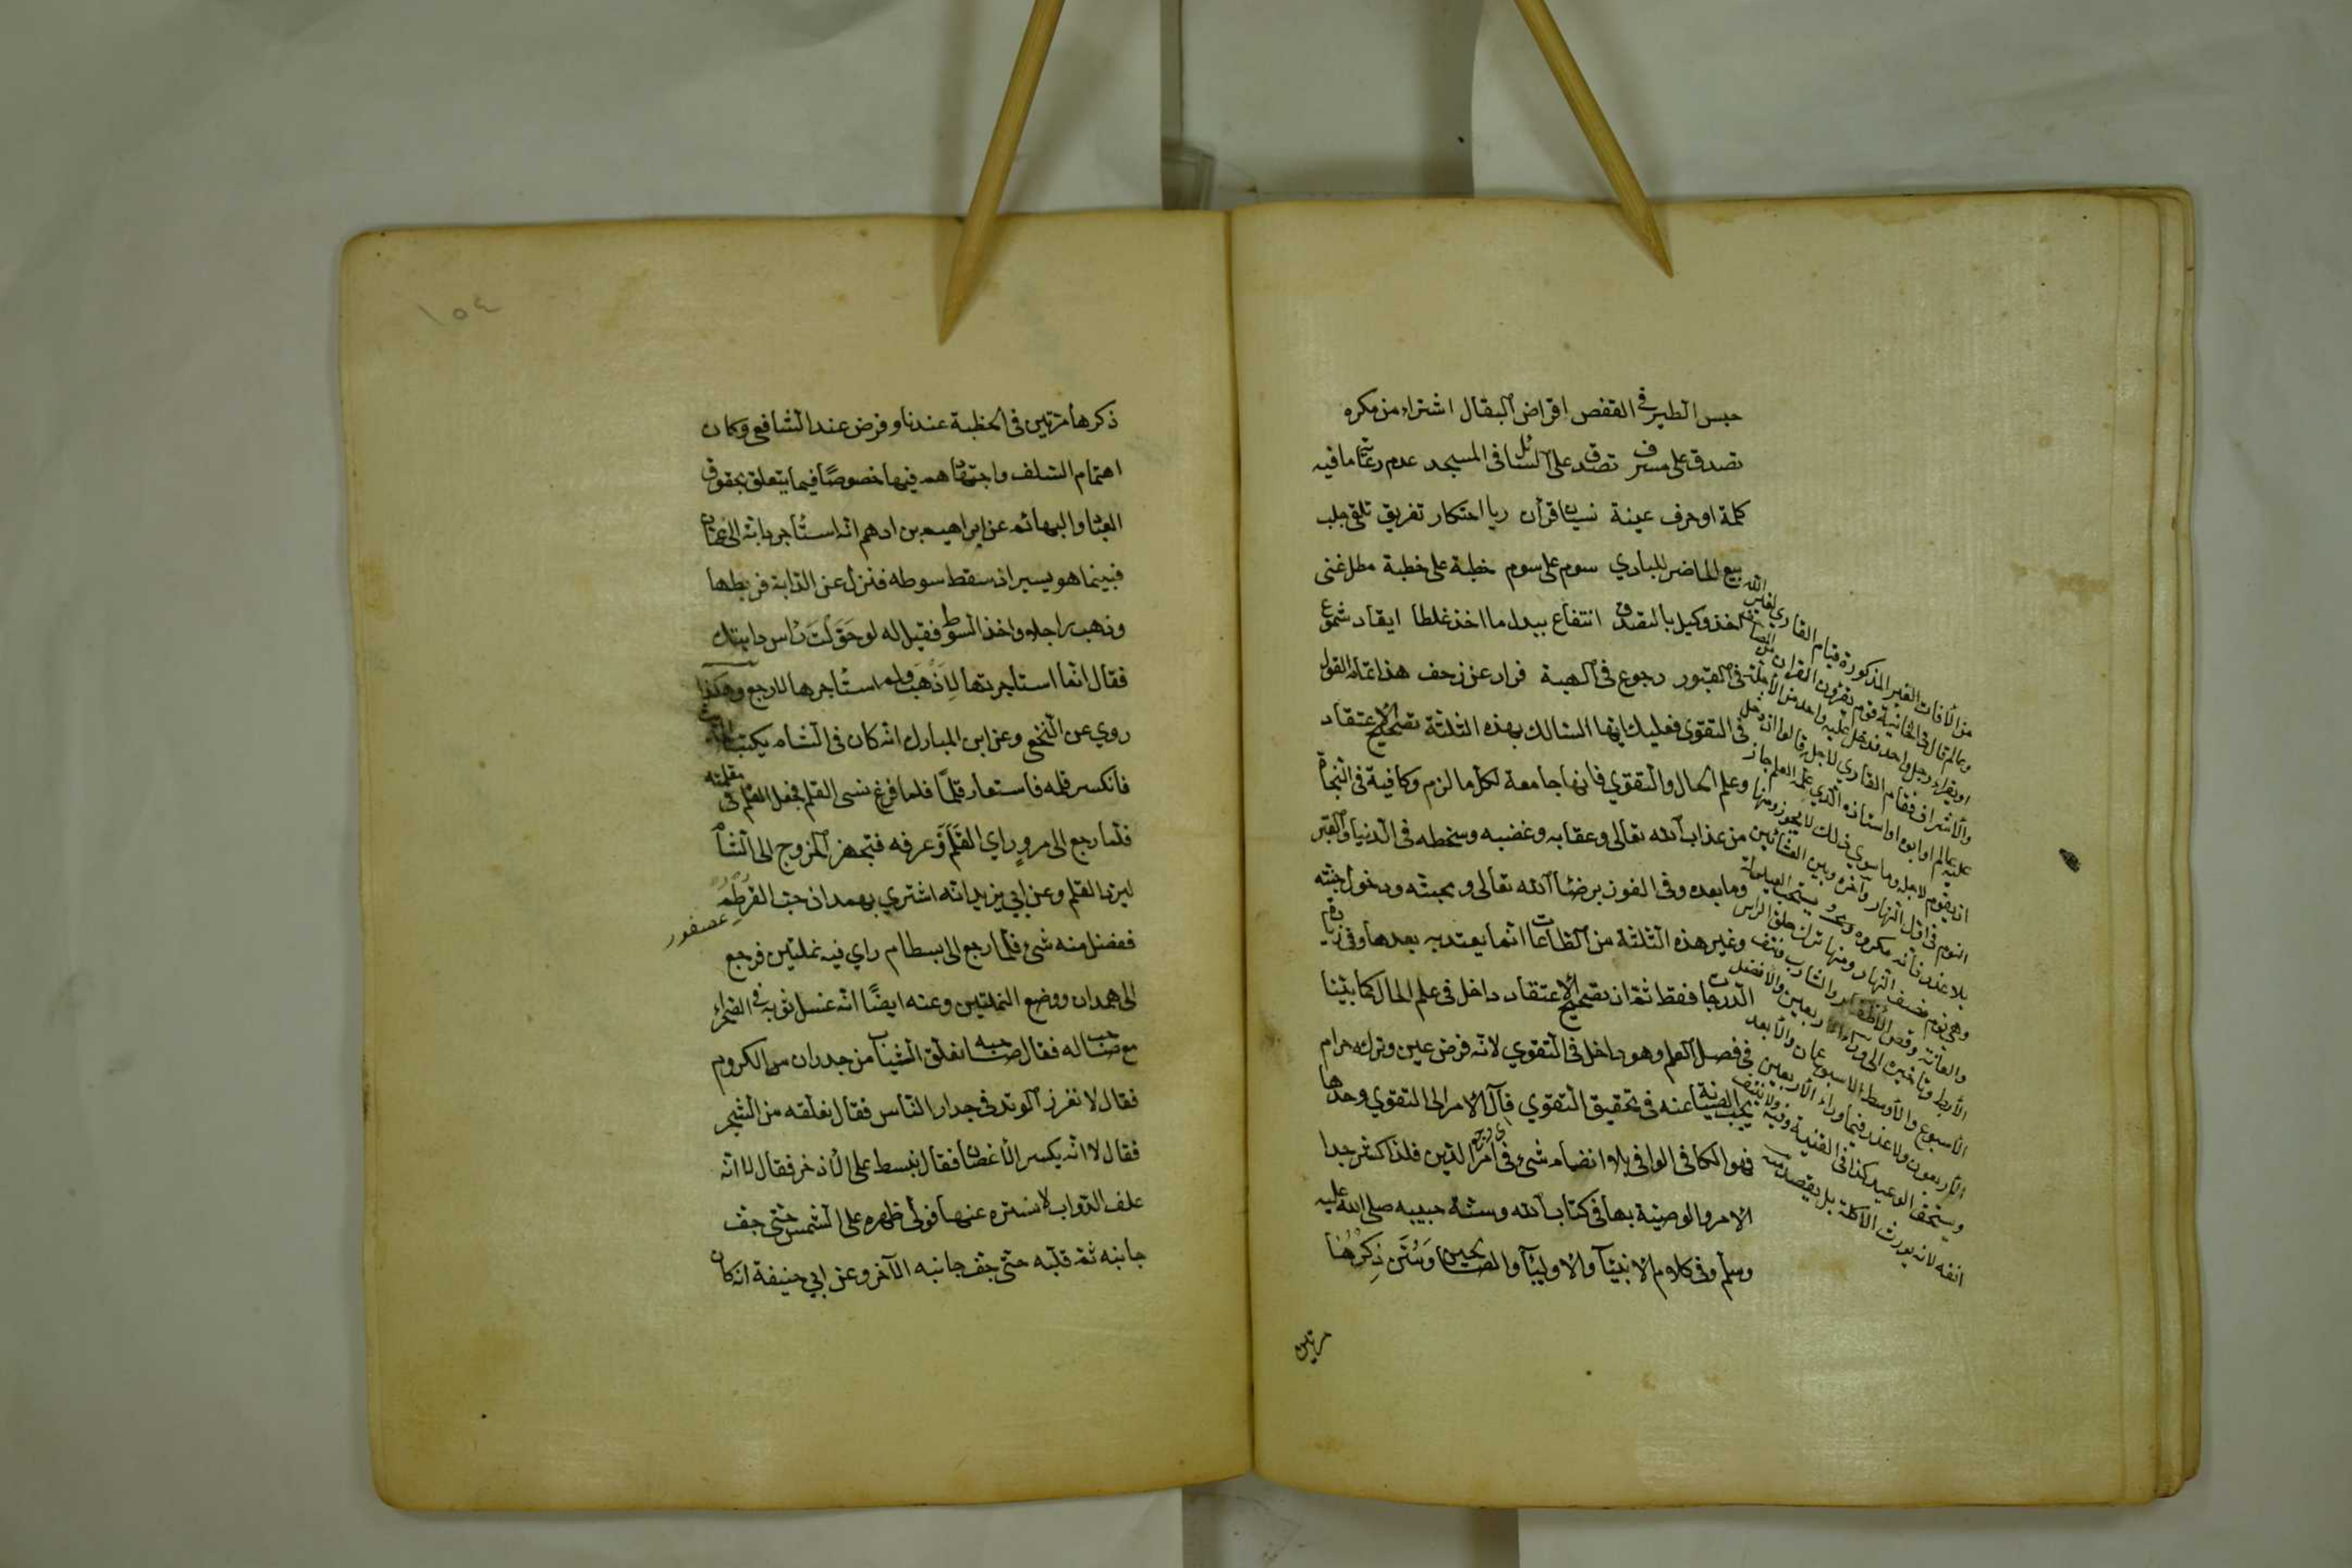 حبس الطير في القفص اقراض البقال اشتراء من مكره
تصدق على مسرف تصدق على السائل فى المسجد عدم رعاية ما فيه
كلمة او حرف عينة نسيان قرآن ربا احتكار تفريق تلقى جلب
بيع الحاضر للبادي سوم على سوم خطبة على خطبة مطل غنى
اخذ وكيل بالتصدق انتفاع ببدل ما اخذ غلطا ايقاد شموع
فى القبور رجوع فى الهبة فرار عن زحف هذا تمام القول
فى التقوى فعليك ايها السالك بهذه الثلثة تصحيح الاعتقاد
وعلم الحال والتقوي فانها جامعة لكل ما لزم وكافية فى النجاة
من عذاب الله تعالى وعقابه وغضبه وسخطه فى الدنيا والقبر
وما بعده وفى الفوز برضاء الله تعالى ومحبته ودخول جنته
وغير هذه الثلثة من الطاعات انما يعتد به بعدها وفى زيادة
الدرجات فقط ثم ان تصحيح الاعتقاد داخل فى علم الحال كما بينا
فى فصل العلم وهو داخل فى التقوي لانه فرض عين وتركه حرام
يجب الصيانة عنه فى تحقيق التقوي فآل الامر الى التقوي وحدها
اي رجع
فهو الكافى الوافى بلا انضمام شئ فى امر الدين فلذا كثر جدا
الامر والوصية بها فى كتاب الله وسنة حبيبه صلى الله عليه
وسلم وفى كلام الانبيآ والاوليآ والصالحين وسُنَّ ذِكرُها
مرتين
من الآفات الغير المذكورة قيام القاري لغير الله
وعالم قال فى الخانية قوم يقرؤن القران من المصاحف
او يقرأ رجل واحد فدخل عليه واحد من الاجلة
والاشراف فقام القاري لاجله قالوا ان دخل
عليه عالم او ابوه او استاذه الذي علمه العلم جاز
ان يقوم لاجله وما سوي ذلك لا يجوز ومنها
النوم فى اول النهار وآخره وبين العشائين
بلا عذر فانه مكروه ويستحب القيلولة
وهى نوم نصف النهار ومنها ترك حلق الراس
والعانة وقص الاظفار والشارب ونتف
الابط وتأخيره الى وراء الاربعين والافضل
الاسبوع والاوسط الاسبوعان والابعد
الاربعون ولا عذر فيما وراء الاربعين
ويستحق الوعيد كذا فى القنية وفيه ولا ينتف
انفه لانه يورث الاكلة بل يقصه
١٥٤
ذكرها مرتين فى الخطبة عندنا وفرض عند الشافعي وكان
اهتمام السلف واجتهادهم فيها خصوصًا فيما يتعلق بحقوق
العباد والبهائم عن ابراهيم بن ادهم انه استأجر دابة الى عمان
فبينما هو يسير اذ سقط سوطه فنزل عن الدابة فربطها
وذهب راجلا واخذ السوط فقيل له لو حَوَّلتَ رأس دابتك
فقال انما استاجرتها لِأَذهَب ولم استأجرها لارجع وهكذا
روي عن النخعي وعن ابن المبارك انه كان فى الشام يكتب
فانكسر قلمه فأستعار قلمًا فلما فرغ نسى القلم فجعل القلم فى مقلمته
فلما رجع الى مرو راي القَلَمَ وَعرفه فتجهز للخروج الى الشأم
ليرد القلم وعن ابي يزيد انه اشتري بهمدان حب القُرطُمِ
عصفور
ففضل منه شئ فلما رجع الى بسطام راي فيه نملتين فرجع
الى همدان ووضع النملتين وعنه ايضًا انه غسل ثوبه فى الصحراء
مع صاحب له فقال صاحبه نعلق الثياب من جدران الكروم
فقال لا نغرز الوتد فى جدار الناس فقال نعلقه من الشجر
فقال لا انه يكسر الاغصان فقال نبسط على الأذخر فقال لا انه
علف الدواب لا نستره عنها فولى ظهره على الشمس حتى جف
جانبه ثم قلبه حتى جف جانبه الآخر وعن ابي حنيفة انه كان